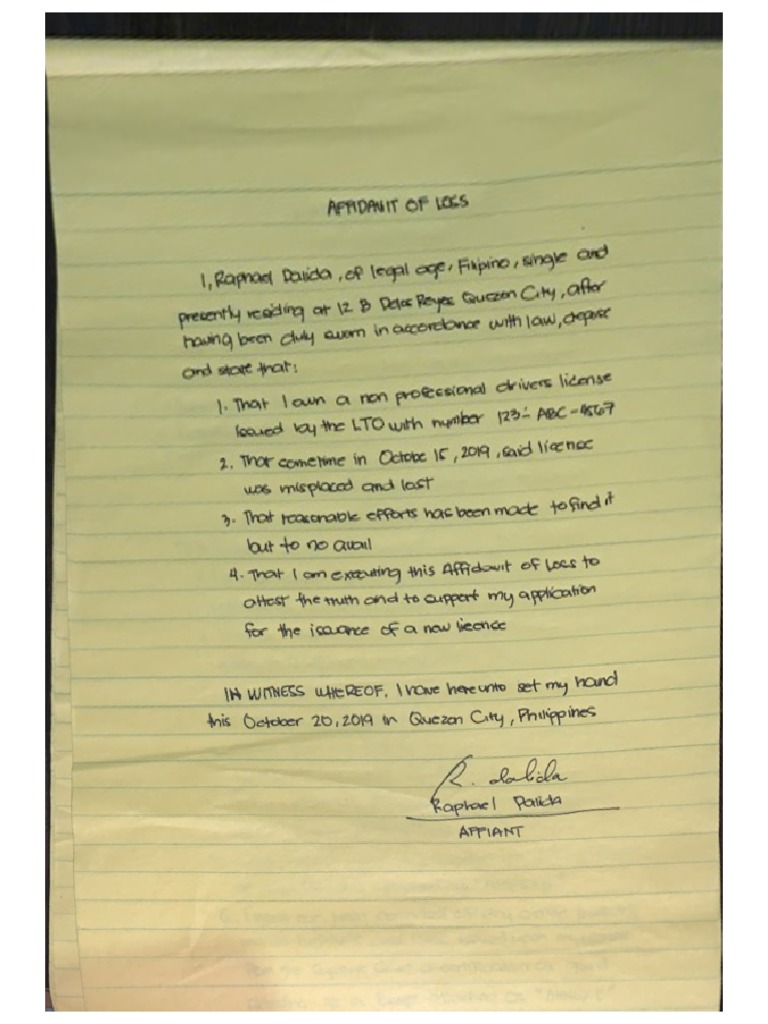 AFFIDAVIT OF LOSS
I, Raphael Dalida, of legal age, Filipino, single and
presently residing at 12 B Delos Reyes Quezon City, after
having been duly sworn in accordance with law, depose
and state that:
1. That I own a non professional drivers license
Issued by the LTO with number 123-ABC-4567
2. That sometime in Octobe 15, 2019, said license
was misplaced and lost
3. That reasonable efforts has been made to find it
but to no avail
4. That I am executing this Affidavit of Loss to
attest the truth and to support my application
for the issuance of a new license
IN WITNESS WHEREOF, I have hereunto set my hand
this October 20, 2019 in Quezon City, Philippines
R. dalida
Raphael Dalida
AFFIANT